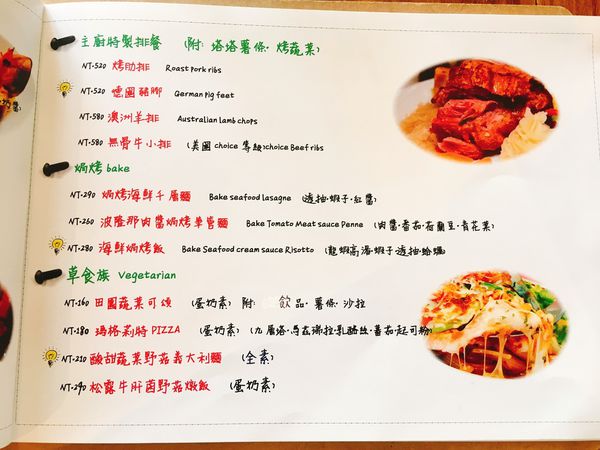 主廚特製排餐 (附: 塔塔薯條. 烤蔬菜)
NT.520 烤肋排 Roast pork ribs
NT.520 德國豬腳 German pig feet
NT.580 澳洲羊排 Australian lamb chops
NT.580 無骨牛小排 (美國 choice 等級)choice Beef ribs
焗烤 bake
NT.290 焗烤海鮮千層麵 Bake seafood lasagne (透抽.蝦子.紅醬)
NT.260 波隆那肉醬焗烤筆管麵 Bake Tomato Meat sauce Penne (肉醬.番茄.荷蘭豆.青花菜)
NT.280 海鮮焗烤飯 Bake Seafood cream sauce Risotto (龍蝦高湯.蝦子透抽.蛤蠣)
草食族 Vegetarian
NT.160 田園蔬菜可頌 (蛋奶素) 附 飲品.薯條.沙拉
NT.180 瑪格莉特 PIZZA (蛋奶素) (九層塔.馬茲瑞拉.乳酪絲.番茄.起司粉)
NT.210 酸甜蔬菜野菇義大利麵 (全素)
NT.290 松露牛肝菌野菇燉飯 (蛋奶素)